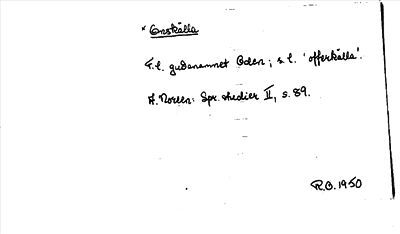 * Onskälla
F.l. gudanamnet Oden; s.l. 'offerkälla'.
A. Noreen: Spr. studier II, s. 89.
R.O. 1950